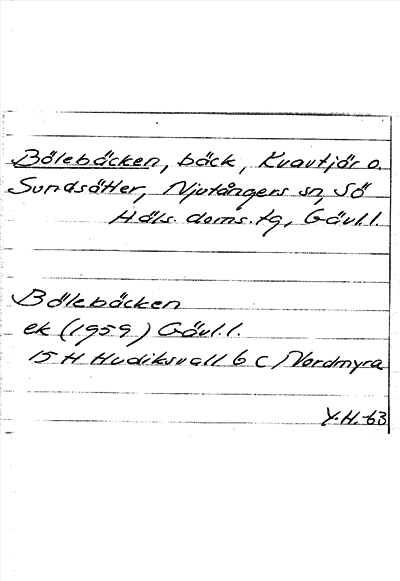 Bölebäcken, bäck, Kvavtjär o.
Sundsätter, Njutångers sn, Sö
Häls. doms. tg, Gävl.l.
Bölebäcken
ek (1959) Gävl.l.
15 H Hudiksvall 6 c/Nordmyra
Y.H.-63